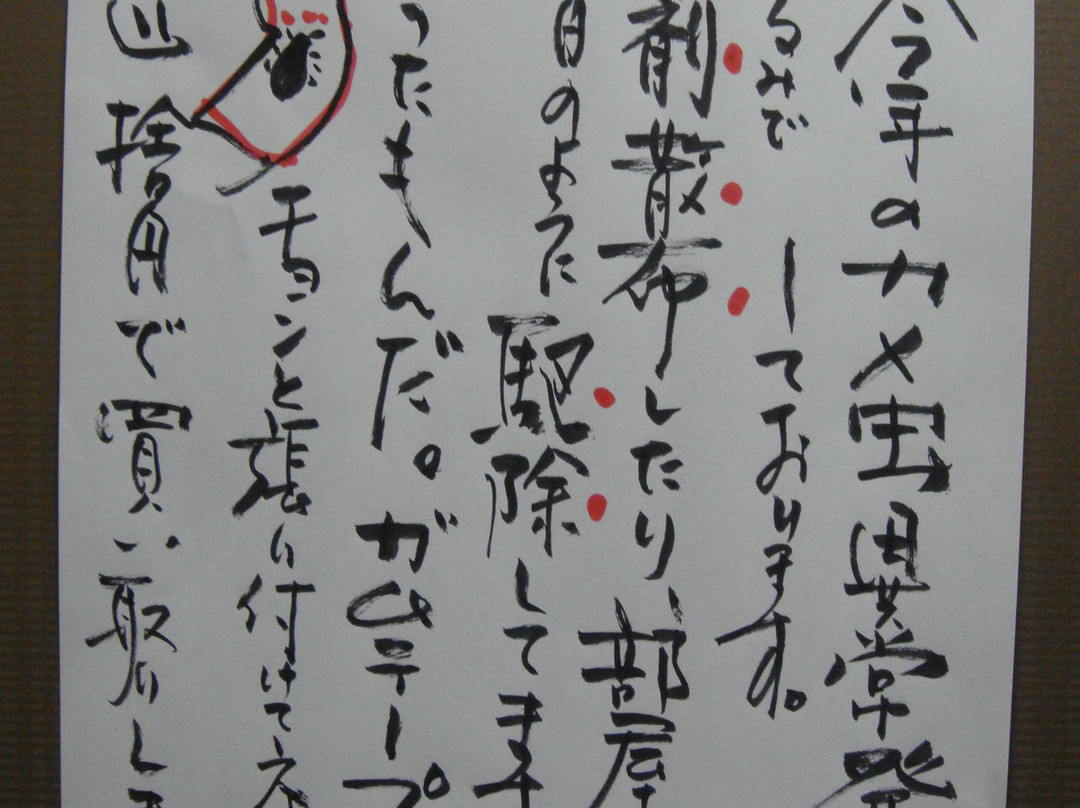 今年のカメ虫異常発
るみで しております。
剤散布したり、部屋
日のように駆除してます
ったもんだ。ガムテープ
チョンと張り付けてネ
拾円で買い取りしま